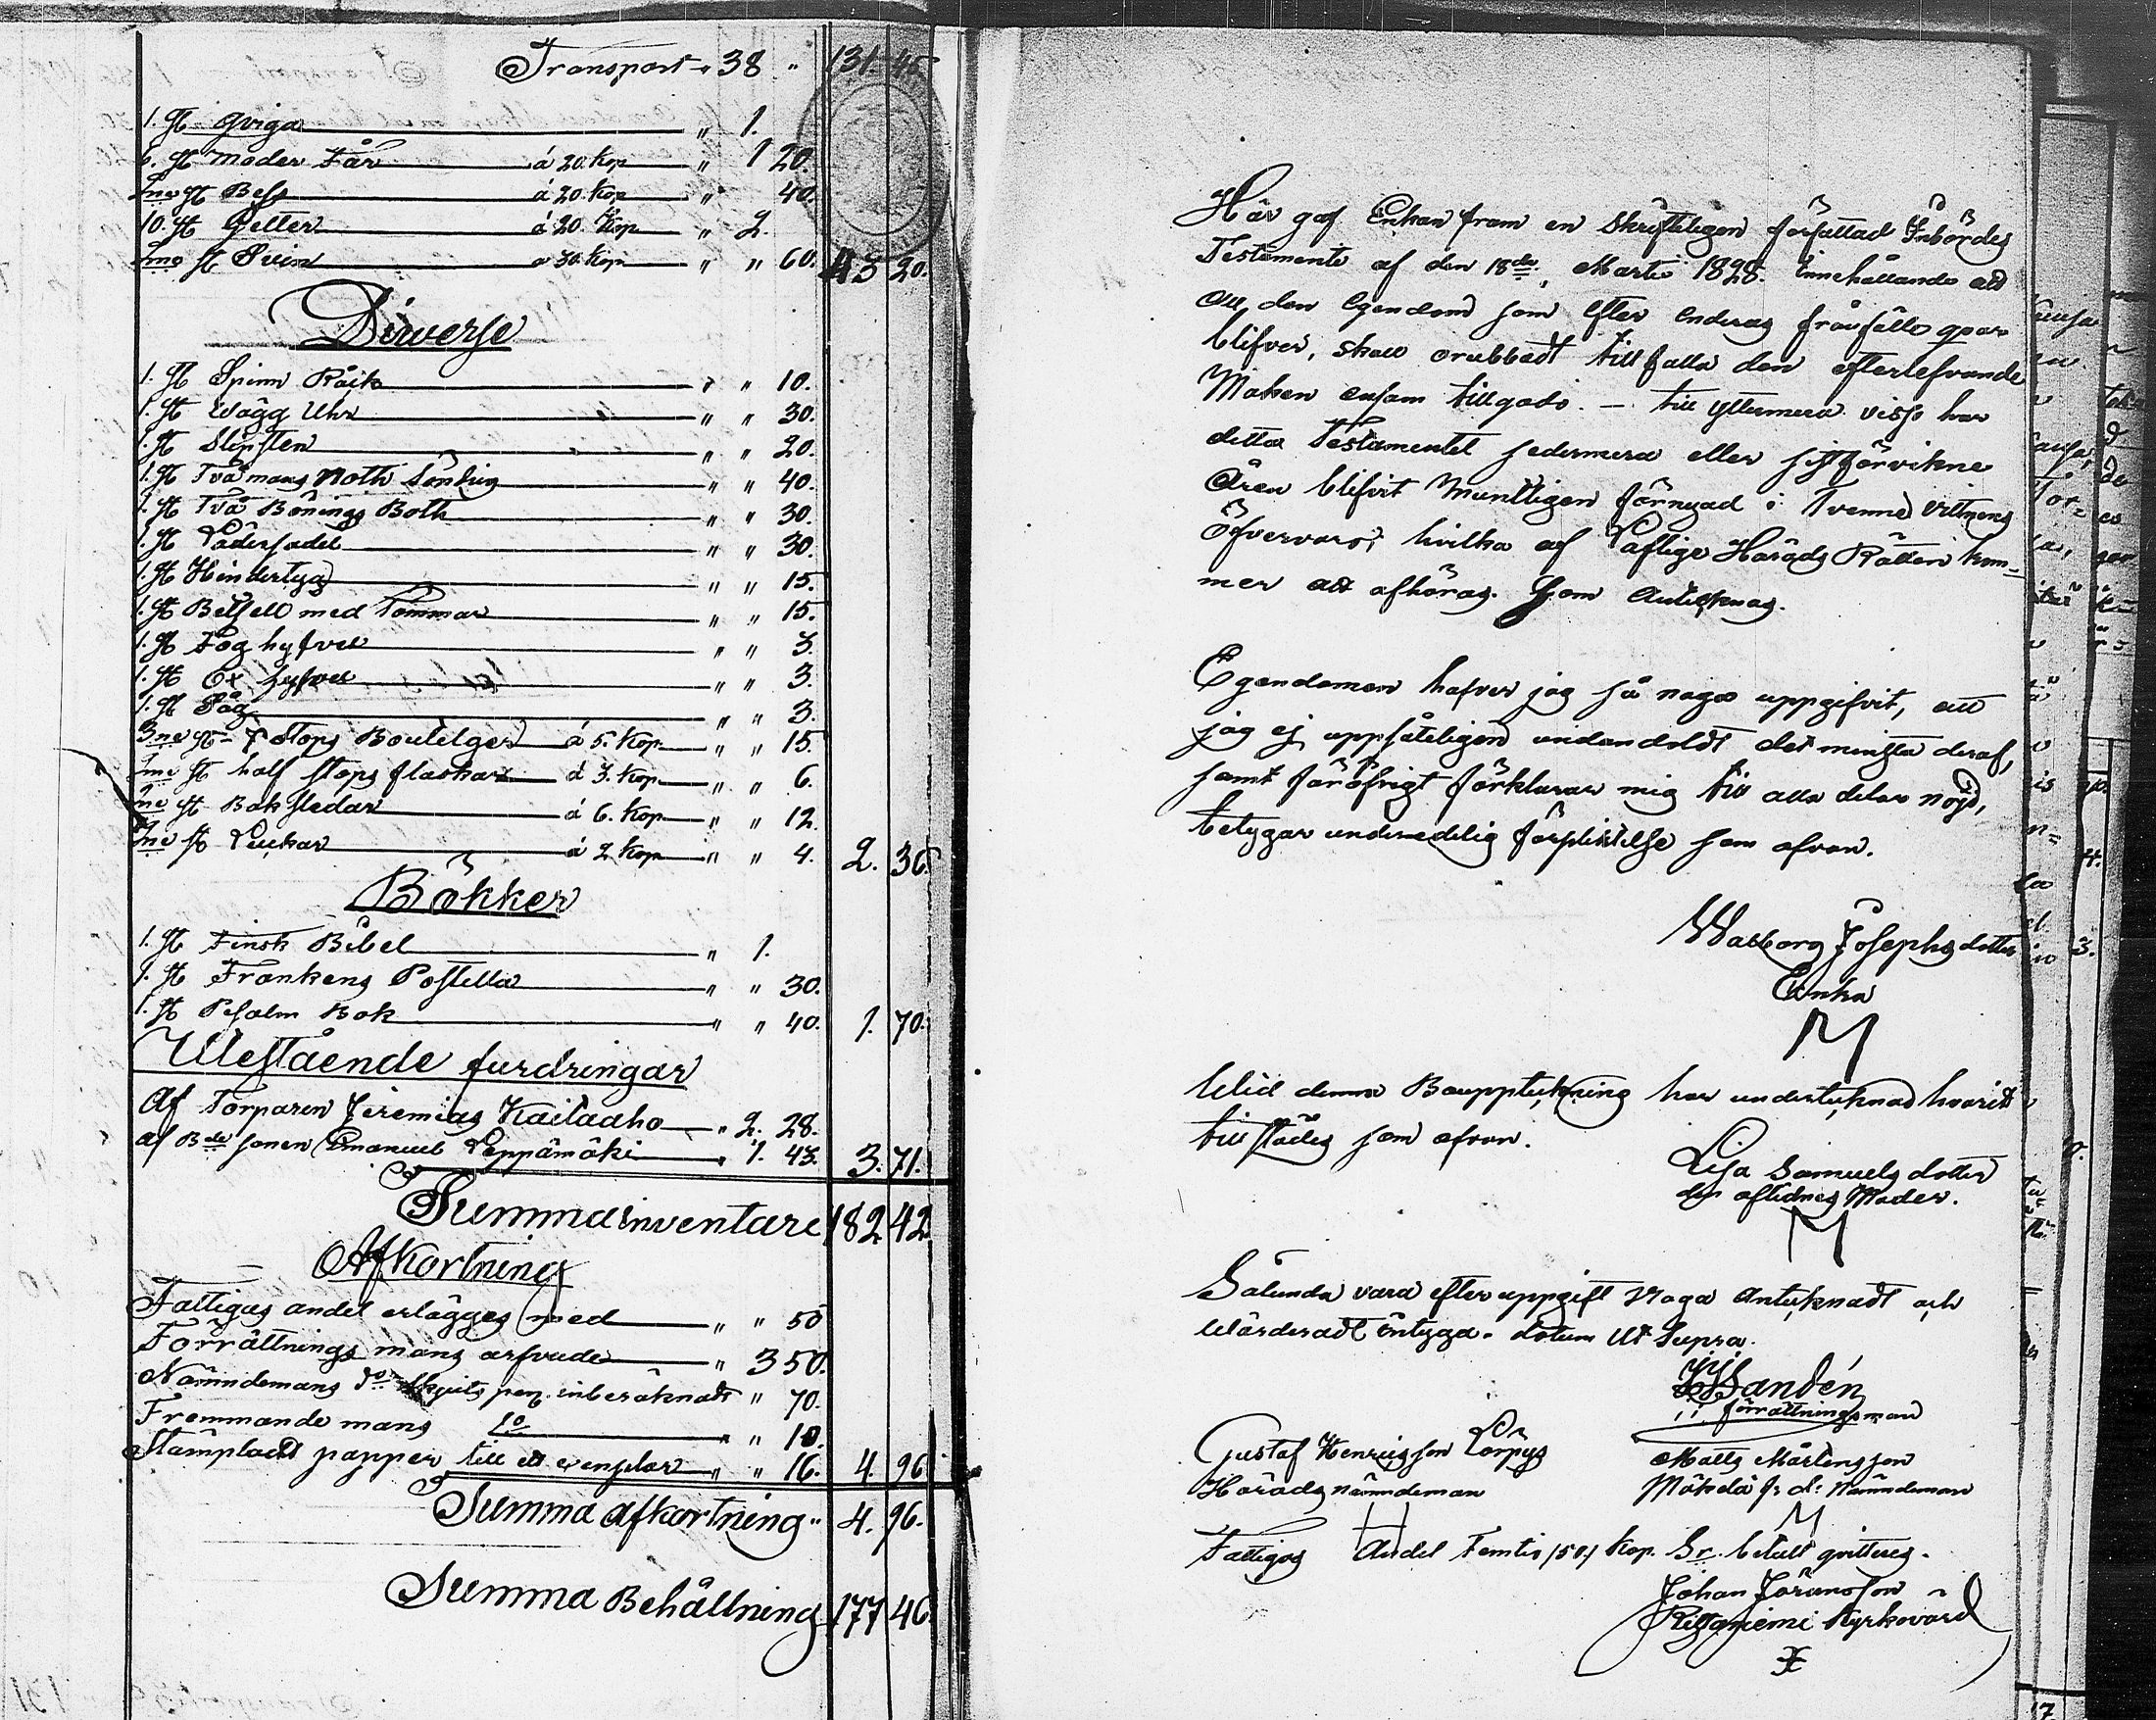 Transport " 38 " 131. 45.
1. st Qviga " 1.
6. st moder Får á 20. Kop " 1 20.
2ne st Bess á 20. Kop " 40.
10. st Getter á 20. Kop " 2.
2ne st Svin a 30. Kop " " 60. 43 20.
Diwerse
1. st Spinn Råck " " 10.
1. st Wägg Uhr " " 30.
1. st Slipsten " " 20.
1. st Två mans Noth " " 40.
1. st Två Bönings Both " " 30.
1. st Lädersadel " " 30.
1. st Hindertyg " " 15.
1. st Betsell med Tömmar " " 15.
1. st Foghyfvel " " 3.
1. st Ox hyfvel " " 3.
1. st Såg " " 3.
3ne st Stops Boutelger á 5. Kop " " 15.
2ne st half stops flaskar á 3. Kop " " 6.
2ne st Bak sledar á 6. Kop " " 12.
2ne st Luckar á 2 Kop " " 4. 2. 36.
Bökker
1. st Finsk Bibel " 1.
1. st Frankens Postella " " 30.
1. st Psalm Bok " " 40. 1. 70.
Utestående furdringar
Af Torparen Jeremias Kailaaho " 2. 28.
af Bde sonen Emanuel Leppämäki " 1. 43. 3. 71.
Summa inventare 182 42.
Afkortning
Fattigas andel erlägges med " " 50
Förrättnings mans arfvode " 3 50.
Nämndemans do skjuts pen. inberäknadt " 70.
Frammande mans do " " 10.
Stämpladt papper till ett exemplar " " 16. 4. 96.
Summa afkortning " 4. 96.
Summa Behållning 177 46.
Här gaf Enkan fram en skrifteligen författad Inbördes
Testamente af den 18de Martii 1828. Innehållande att
All den Egendom som efter enderas frånfälle qvar
blifver, skall orubbadt tillfalla den efterlefvande
Maken ensam tillgodo. — till yttermera visso har
detta Testamentet sedermera eller sistförvikne
Åren blifvit Muntligen förnyad i Tvenne Vittnens
Öfvervaro, hvilka af Laflige Harads Rätten kom-
mer att afhöras. Som Antecknas.
Egendomen hafver jag så noga uppgifvit, att
jag ej uppsåteligen undandoldt det minsta deraf,
samt föröfrigt förklarar mig till alla delar nöjd,
betygar undermedelig förpliktelse som ofvan.
Walborg Josephs dotter
Enka
M
Wid denna Bouppteckning har undertecknad hvarit
till städes som ofvan.
Lisa Samuels dotter
den aflidnes Moder.
M
Sålunda vara efter uppgift Noga Antecknadt och
Wärderadt intyga. datum Ut Supra.
Sandén
förrättningsman
Gustaf Henricsson Törpys
Harads nämndeman
Matts Mårtensson
Mökelä f. d. Nämndeman
M
Fattigas Andel Femtio /50/ Kop. Sr. betalt qvitteras.
Johan Jöransson
Kyrkovärd